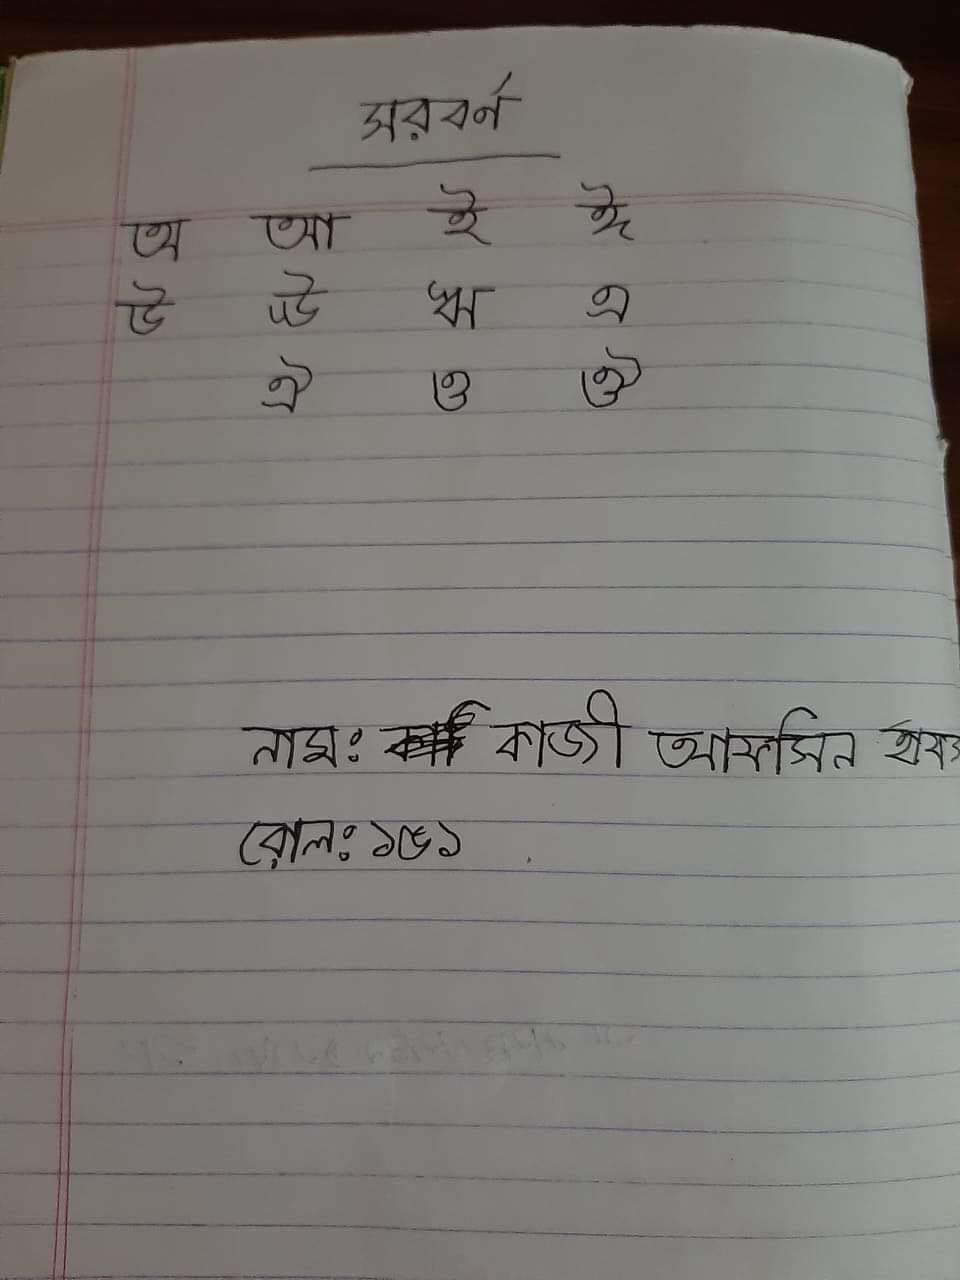 সরবর্ন
অ আ ই ঈ
উ ঊ ঋ এ
ঐ ও ঔ
নাম: কাজী আফসিন
রোল: ১৫১